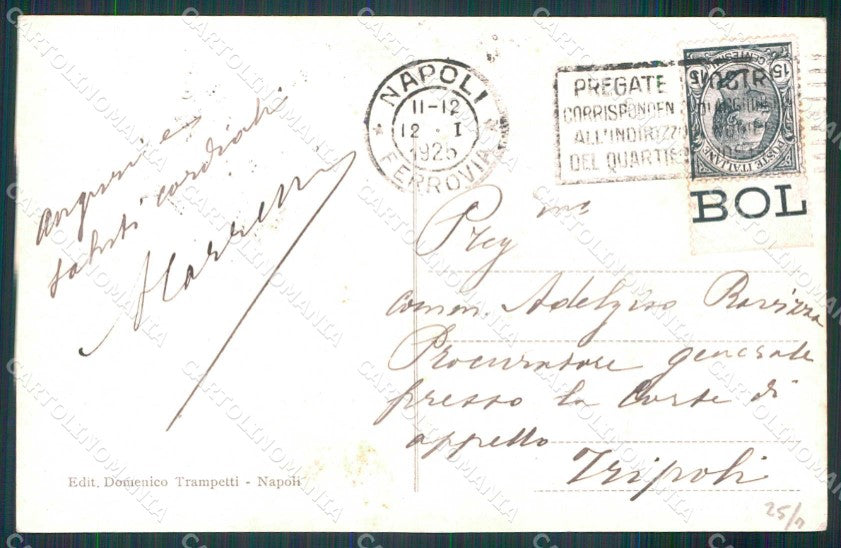 Auguri e
saluti cordiali
NAPOLI
11-12
12 · I
1925
FERROVIA
PREGATE
CORRISPONDEN
ALL'INDIRIZZO
DEL QUARTIE
15
POSTE ITALIANE
BOL
Preg mo
comm. Adelgiso Ravizza
Procuratore generale
presso la Corte di
appello
Tripoli
Edit. Domenico Trampetti - Napoli
CARTOLINOMANIA